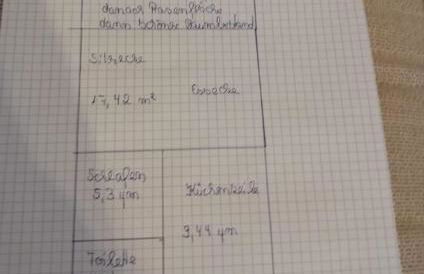 danach Rasenfläche
dann schöner Baumbestand
Sitzecke
Essecke
17,42 m²
Schlafen
5,3 qm
Küchenzeile
3,44 qm
Toilette